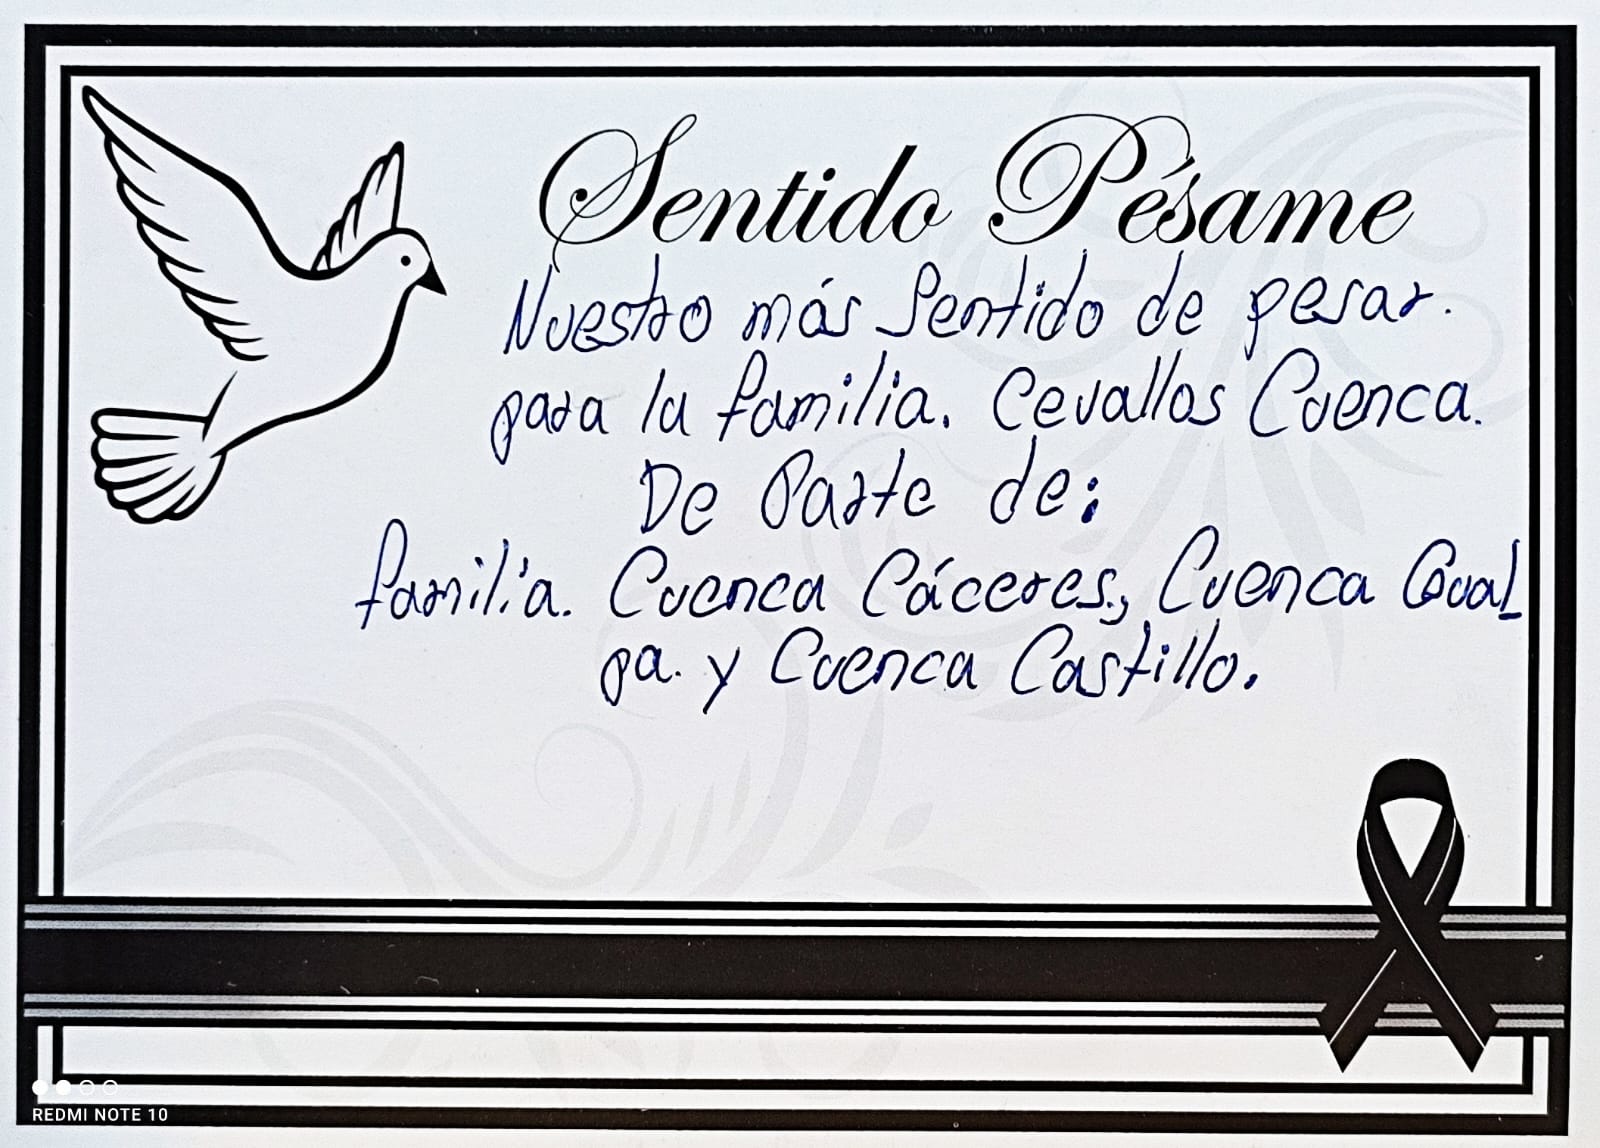 Sentido Pésame
Nuestro más Sentido de pesar.
para la familia. Cevallos Cuenca.
De Parte de:
familia. Cuenca Cáceres, Cuenca Gual
pa. y Cuenca Castillo.
REDMI NOTE 10